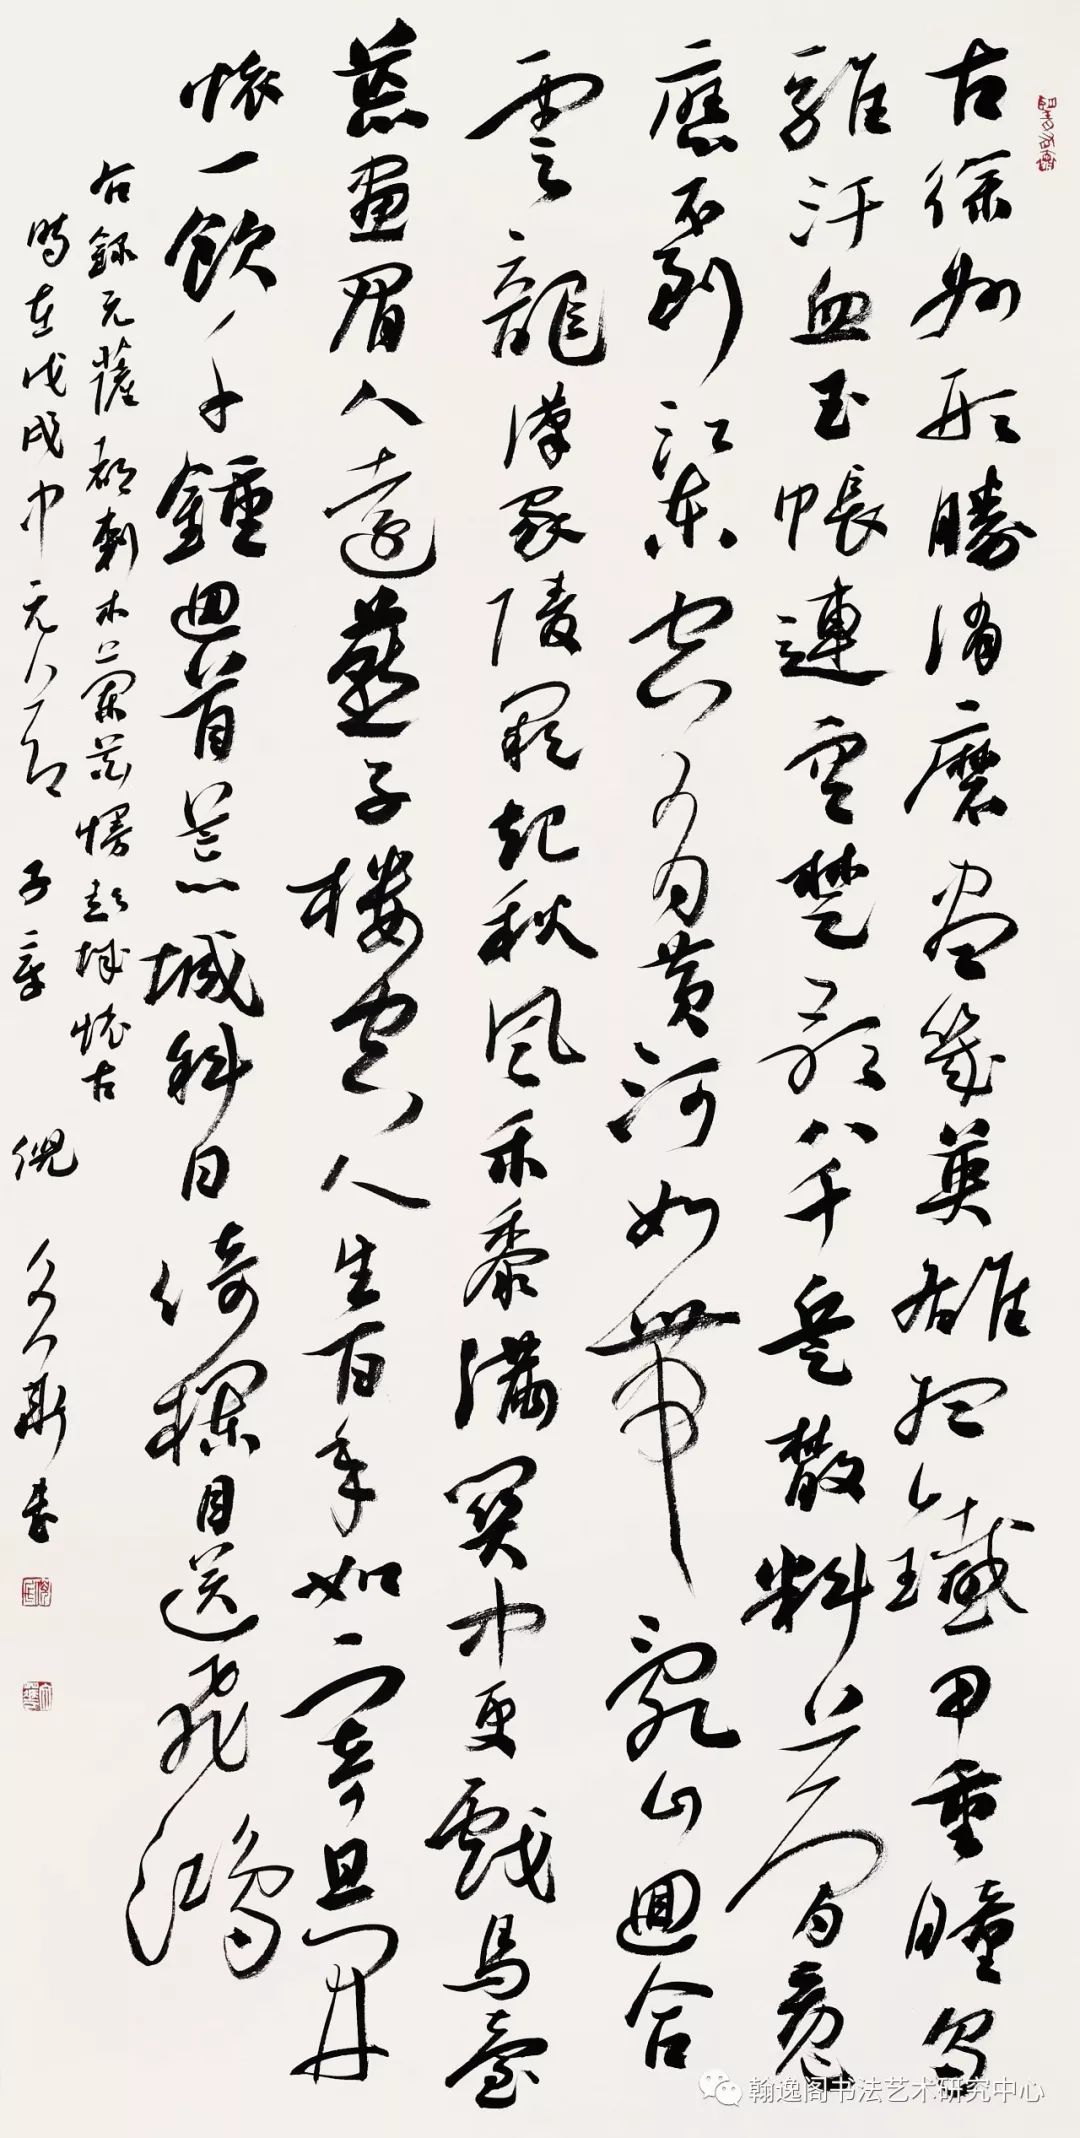 古徐州形勝消磨盡幾英雄想鐵甲重瞳烏
騅汗血玉帳連空楚歌八千兵散料夢魂
應不到江東空有黃河如帶亂山迴合
雲龍漢家陵闕起秋風禾黍滿關中更戲馬臺
荒畫眉人遠燕子樓空人生百年如寄且開
懷一飲千鍾迴首荒城斜日倚欄目送飛鴻
右錄元薩都剌木蘭花慢彭城懷古
時在戊戌中元節 倪 斯書
翰逸阁书法艺术研究中心